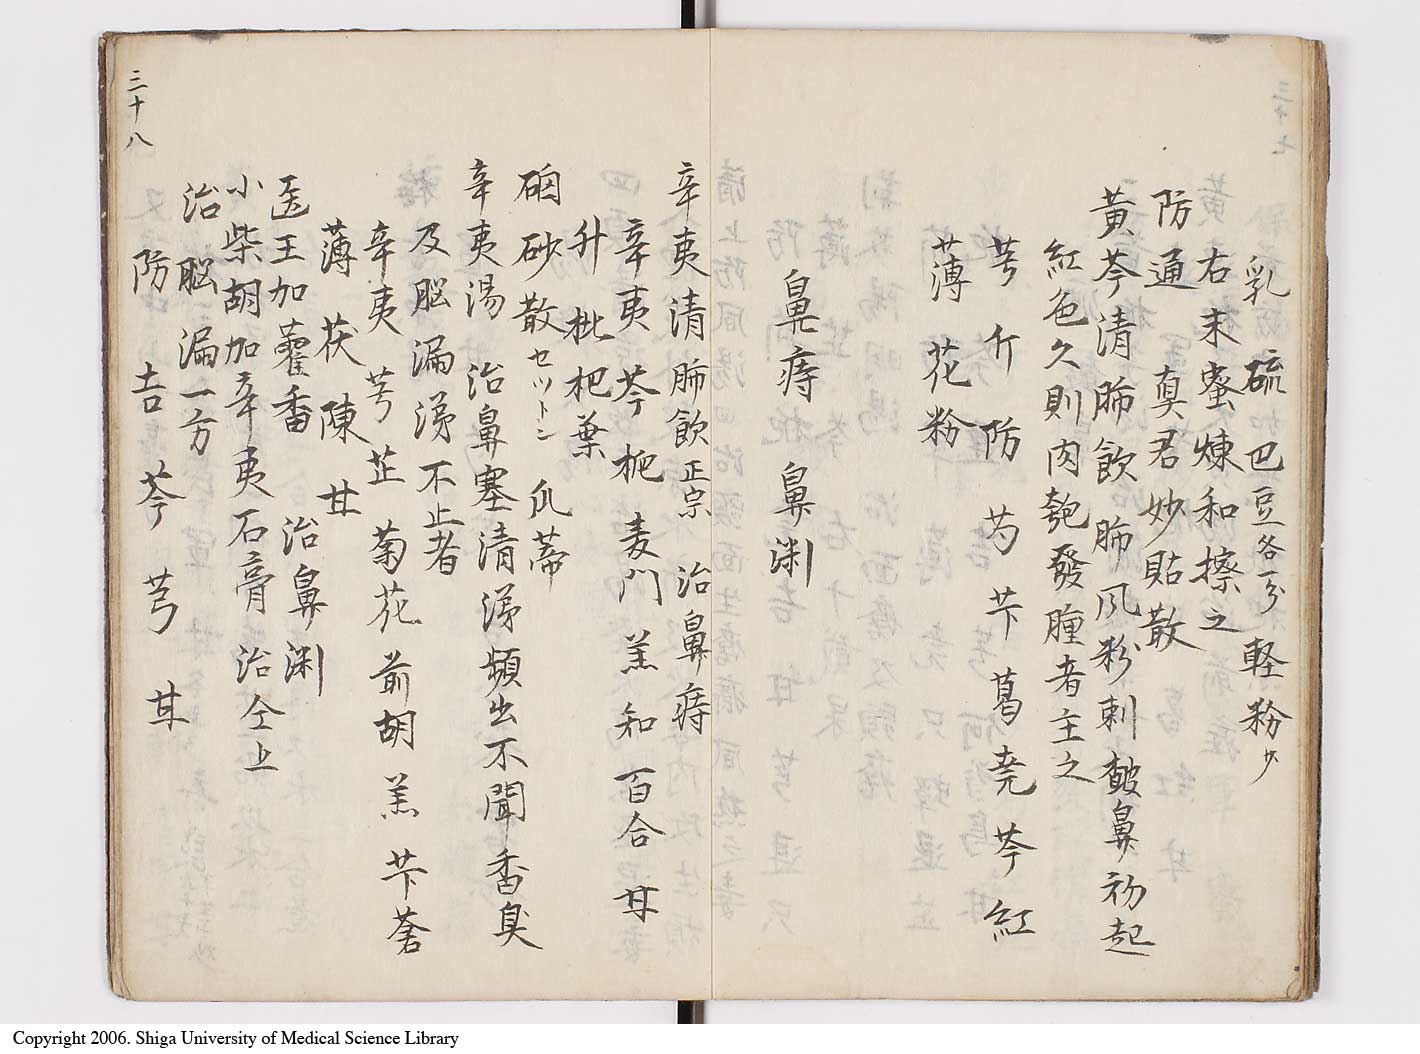 乳　硫　巴豆各一分　軽粉少
右末蜜煉和擦之
防通　真君妙貼散
黄芩清肺飲　肺风粉刺皶鼻初起
紅色久則肉皰發腫者主之
芎　介　防　芍　芐　葛　尭　芩　紅
薄　花粉
鼻痔　鼻渕
辛夷清肺飲正宗　治鼻痔
辛夷　芩　栀　麦門　羔　和　百合　甘
升　枇杷葉
硇砂散セツトン　爪蒂
辛夷湯　治鼻塞清涕頻出不聞香臭
及脳漏涕不止者
辛夷　芎　芷　菊花　前胡　羔　芐　蒼
薄　茯　陳　甘
医王加藿香　治鼻渕
小柴胡加辛夷石膏　治仝上
治脳漏一方
防　吉　芩　芎　甘
三十八
三十七
Copyright 2006. Shiga University of Medical Science Library